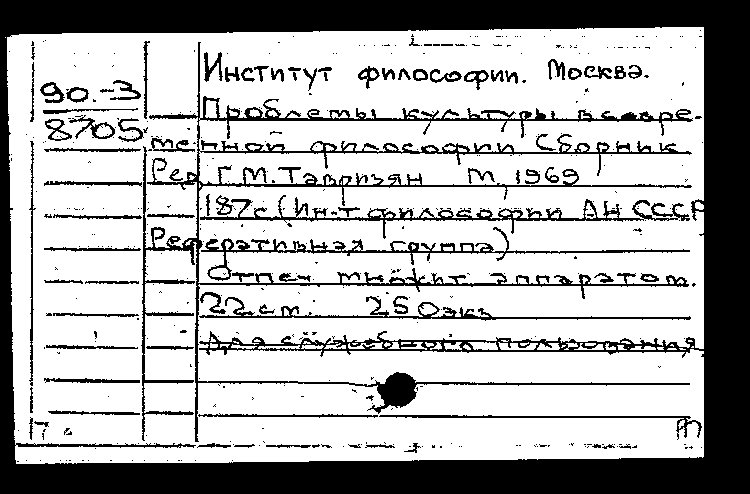 Институт философии. Москва.
90.-3
Проблемы культуры в совре-
8705
менной философии Сборник
Ред. Г.М.Тавризян М., 1969
187с (Ин-т философии АН СССР
Реферативная группа)
Отпеч множит аппаратом.
22см. 250экз
Для служебного пользования